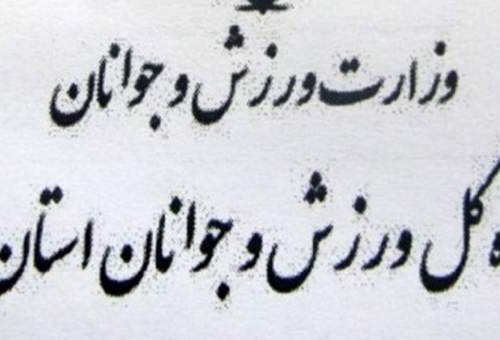 وزارت ورزش و جوانان
ه کل ورزش و جوانان استان